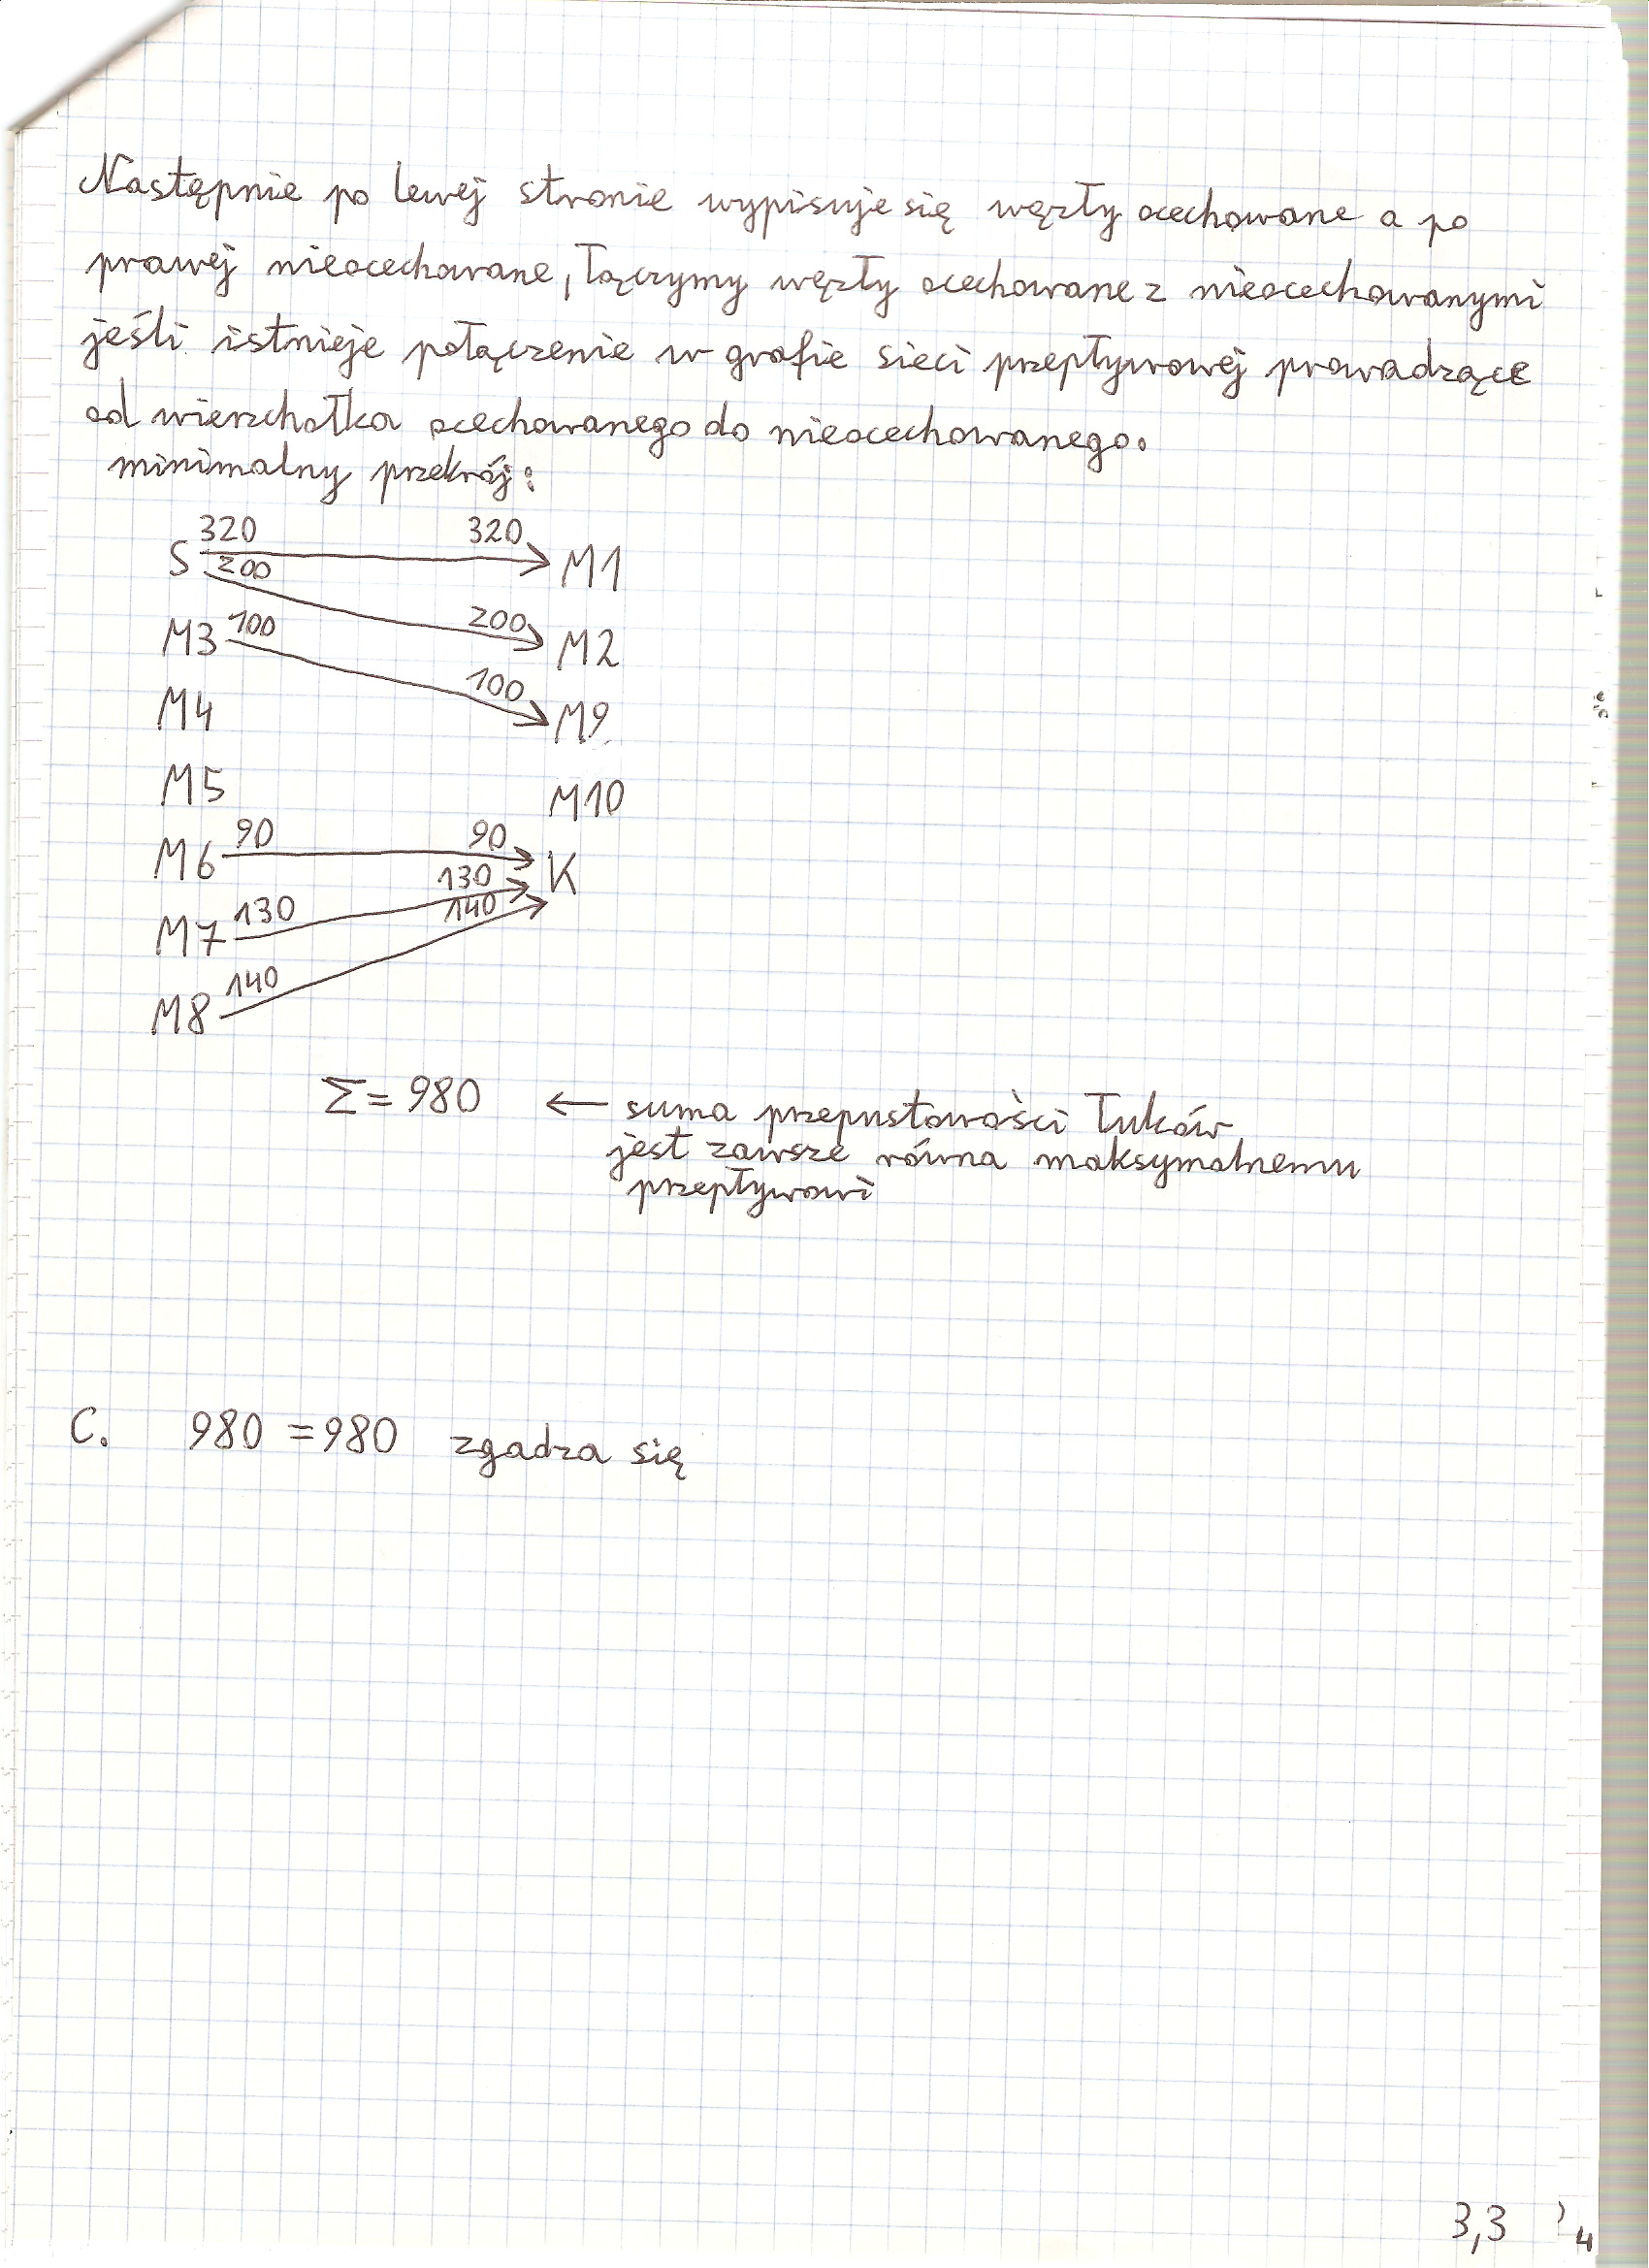 Następnie po lewej stronie wypisuje się węzły ocechowane a po
prawej nieocechowane, łączymy węzły ocechowane z nieocechowanymi
jeśli istnieje połączenie w grafie sieci przepływowej prowadzące
od wierzchołka ocechowanego do nieocechowanego.
minimalny przekrój:
320 320
S M1
200
200
M3 100 M2
100
M4 M9
M5 M10
90 90
M6 K
130
M7 130 140
140
M8
Σ = 980 ← suma przepustowości łuków
jest zawsze równa maksymalnemu
przepływowi
C. 980 = 980 zgadza się
3,3 4